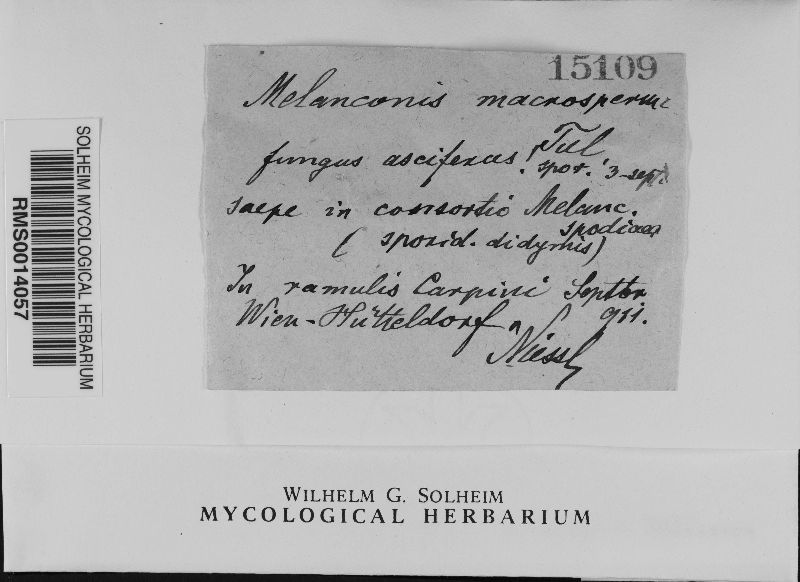 15109
Melanconis macrosperm
fungus asciferus! Tul
spor. 3-sept.
saepe in consortio Melanc.
spodiaea
( sporid. didymis)
In ramulis Carpini Septbr
Wien-Hütteldorf 911.
Niessl
SOLHEIM MYCOLOGICAL HERBARIUM
RMS0014057
WILHELM G. SOLHEIM
MYCOLOGICAL HERBARIUM